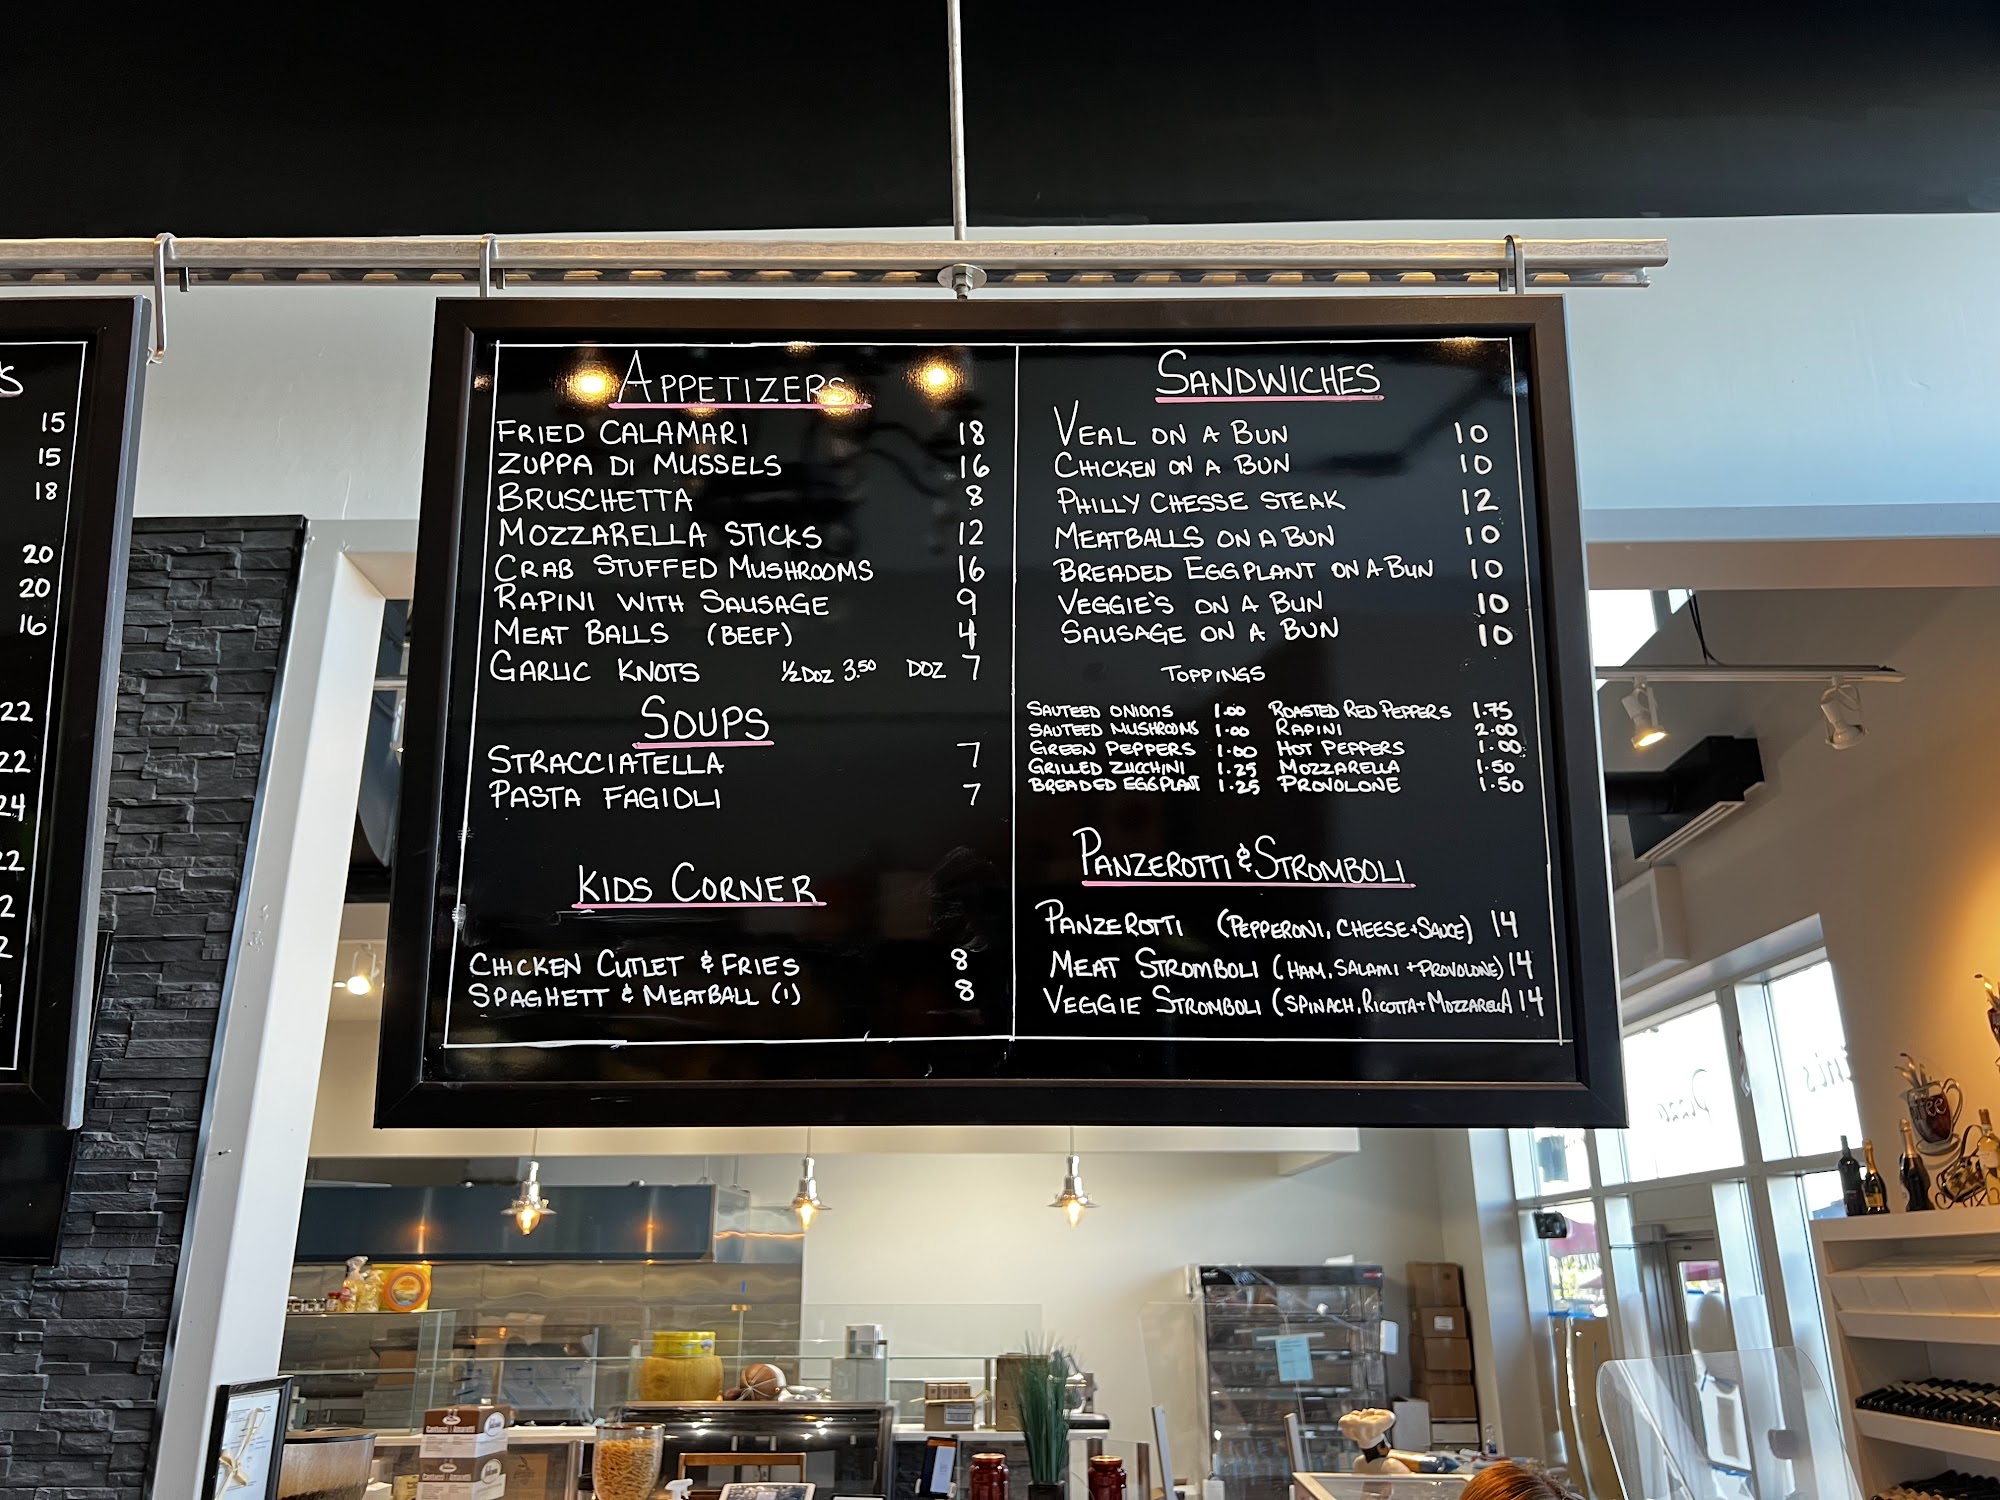 S
15
15
18
20
20
16
22
22
24
22
2
2
APPETIZERS
FRIED CALAMARI 18
ZUPPA DI MUSSELS 16
BRUSCHETTA 8
MOZZARELLA STICKS 12
CRAB STUFFED MUSHROOMS 16
RAPINI WITH SAUSAGE 9
MEAT BALLS (BEEF) 4
GARLIC KNOTS 1/2 DOZ 3.50 DOZ 7
SOUPS
STRACCIATELLA 7
PASTA FAGIOLI 7
KIDS CORNER
CHICKEN CUTLET & FRIES 8
SPAGHETT & MEATBALL (1) 8
SANDWICHES
VEAL ON A BUN 10
CHICKEN ON A BUN 10
PHILLY CHESSE STEAK 12
MEATBALLS ON A BUN 10
BREADED EGGPLANT ON A BUN 10
VEGGIE'S ON A BUN 10
SAUSAGE ON A BUN 10
TOPPINGS
SAUTEED ONIONS 1.00 ROASTED RED PEPPERS 1.75
SAUTEED MUSHROOMS 1.00 RAPINI 2.00
GREEN PEPPERS 1.00 HOT PEPPERS 1.00
GRILLED ZUCCHINI 1.25 MOZZARELLA 1.50
BREADED EGGPLANT 1.25 PROVOLONE 1.50
PANZEROTTI & STROMBOLI
PANZEROTTI (PEPPERONI, CHEESE + SAUCE) 14
MEAT STROMBOLI (HAM, SALAMI + PROVOLONE) 14
VEGGIE STROMBOLI (SPINACH, RICOTTA + MOZZARELLA 14
Cantucci / Amaretti
Cantucci / Amaretti